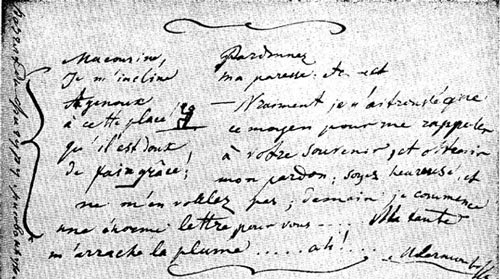 Ma cousine,
Je m'incline
A genoux
à cette place!
qu'il est doux
de faire grâce!
Pardonnez
ma paresse etc etc
— Vraiment je n'ai trouvé que
ce moyen pour me rappeler
à votre souvenir, et obtenir
mon pardon; soyez heureuse, et
ne m'en voulez pas; demain je commence
une énorme lettre pour vous .... Ma tante
m'arrache la plume ..... ah! ...